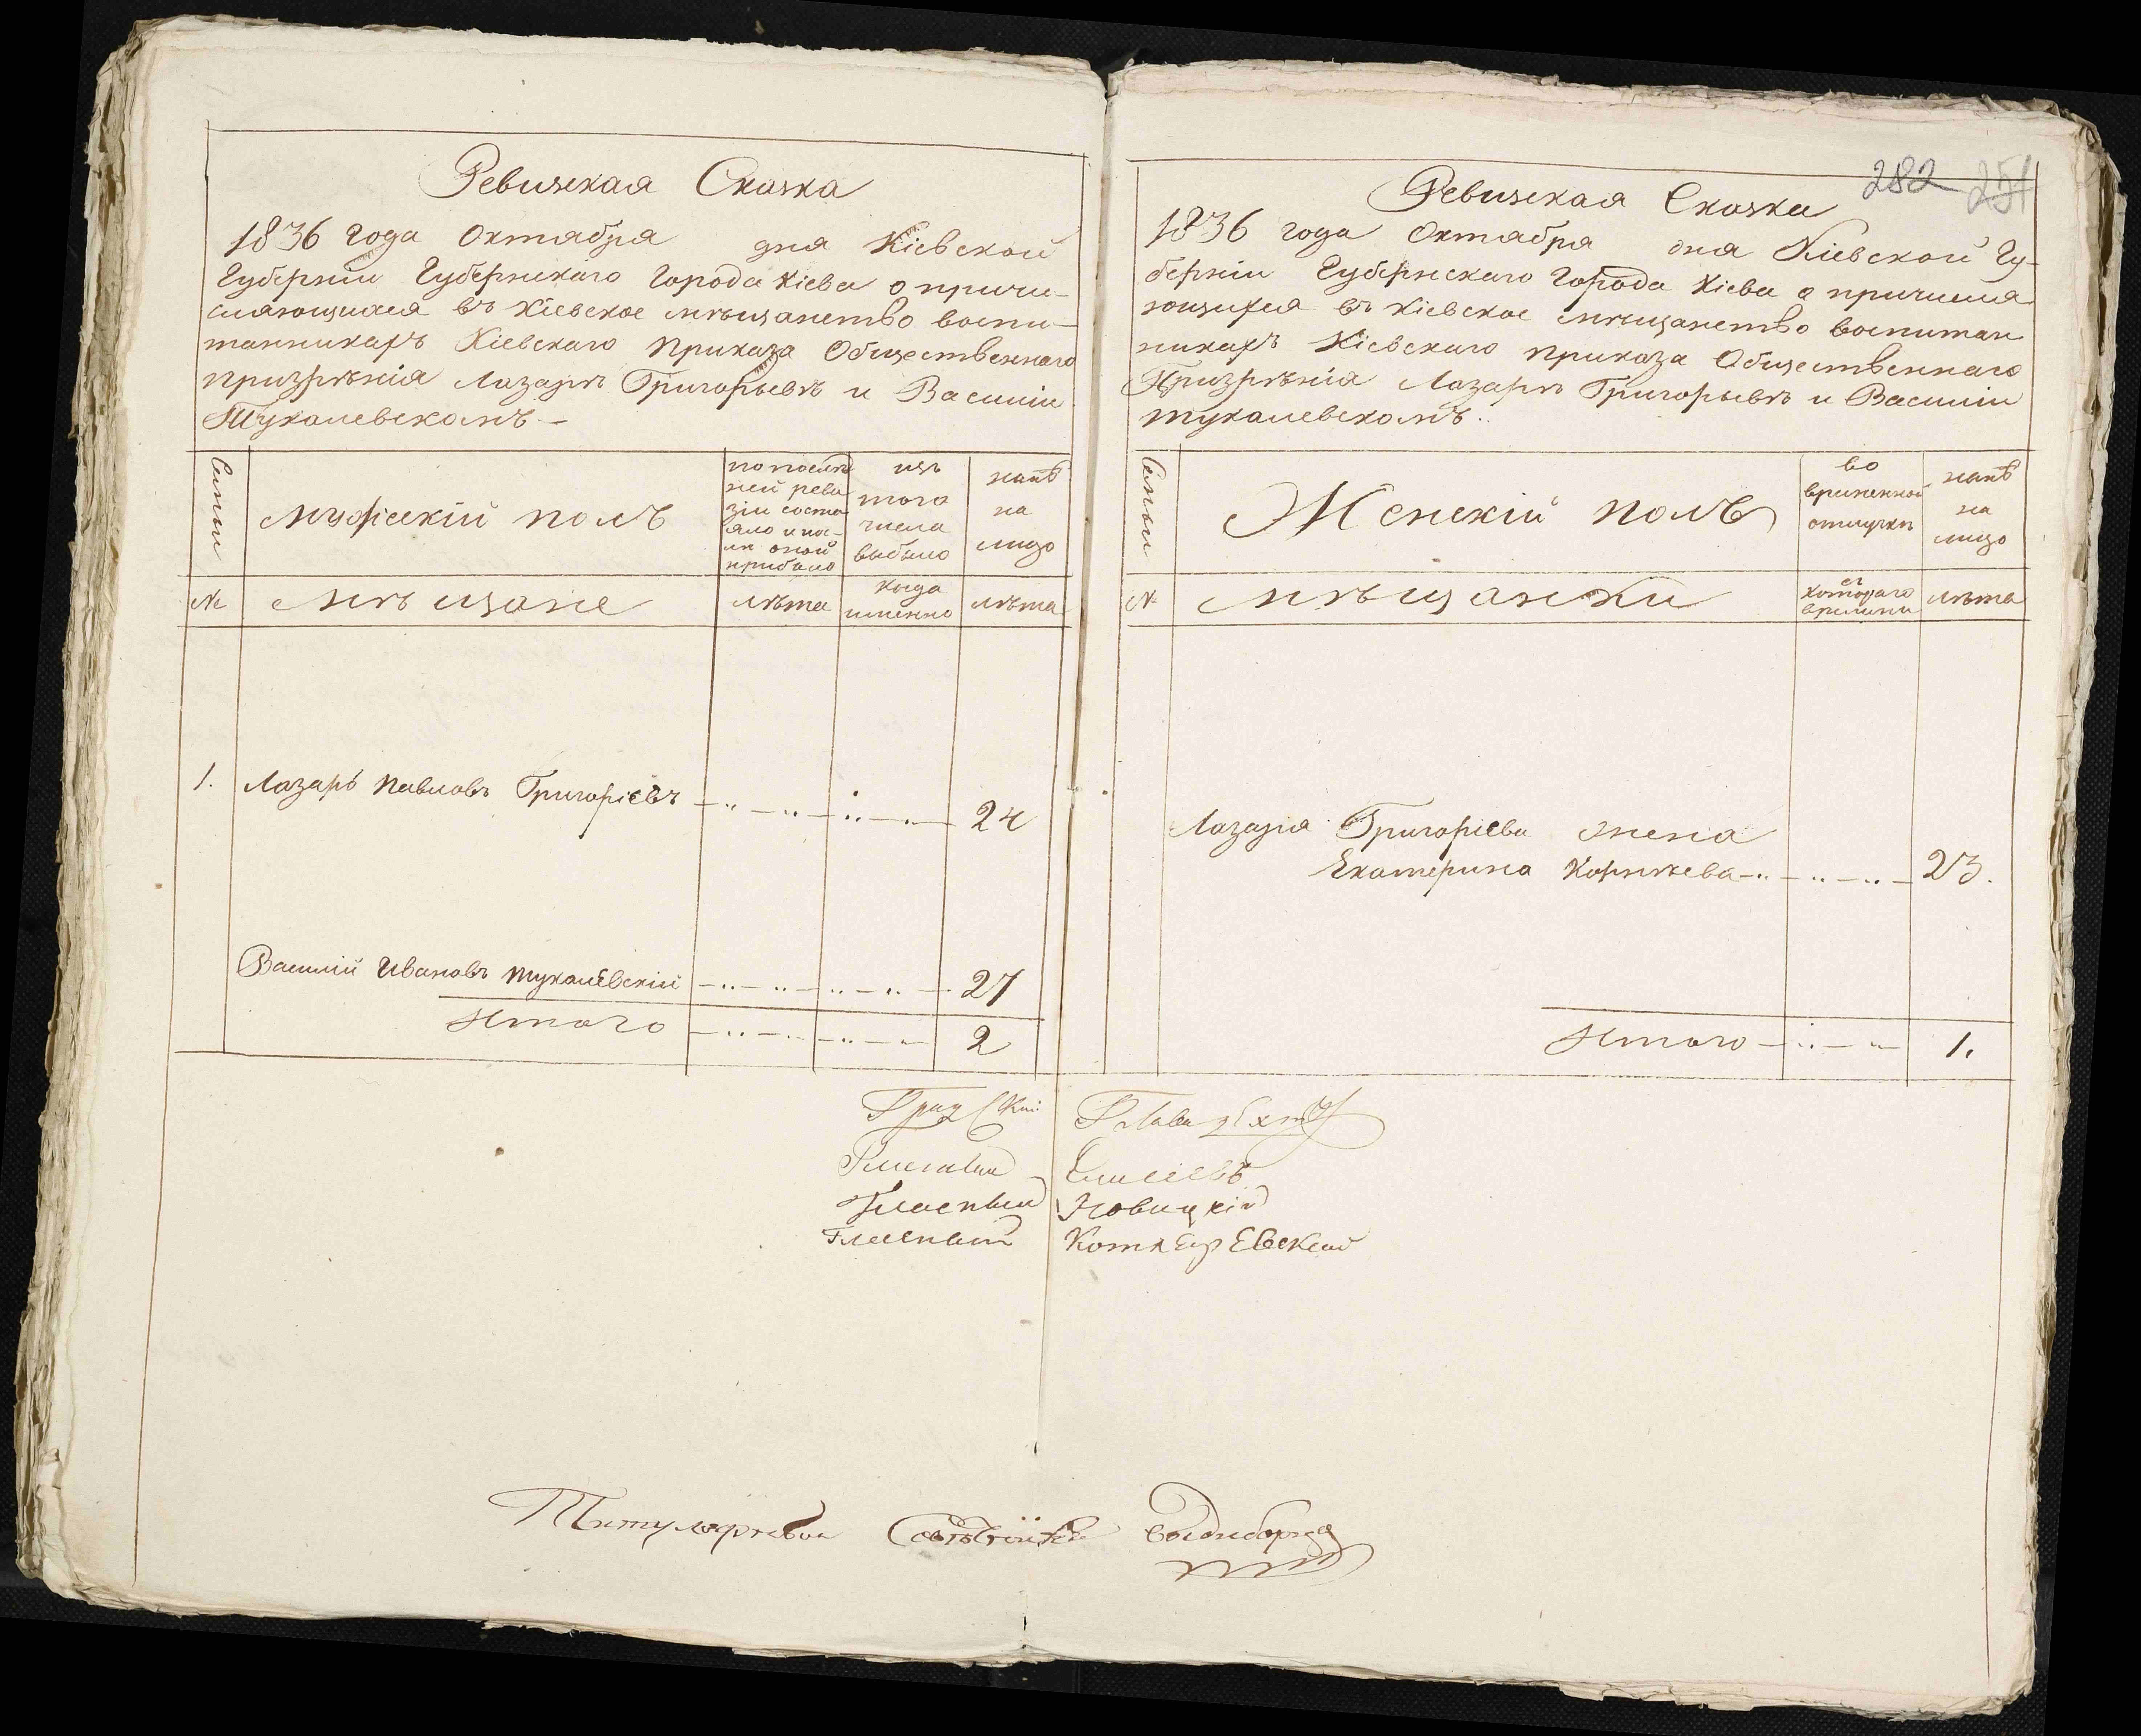 Ревизская Сказка
1836 года Октября дня Кіевской
Губерніи Губернскаго Города Кіева о причи-
сляющихся въ Кіевское мѣщанство воспи-
танникахъ Кіевскаго Приказа Общественнаго
призрѣнія Лазарѣ Григорьевѣ и Василіи
Тукалевскомъ. –
Семьи
Мужескій полъ
по послѣд
ней реви
зіи состо
яло и по-
слѣ оной
прибыло
изъ
того
числа
выбыло
нынѣ
на
лицо
№
Мѣщане
лѣта
когда
именно
лѣта
1. Лазарь Павловъ Григоріевъ 24
Василій Ивановъ Тукалевскій 27
Итого 2
282 251
Ревизская Сказка
1836 года Октября дня Кіевской Гу-
берніи Губернскаго Города Кіева о причисля
ющихся въ Кіевское мѣщанство воспитан
никахъ Кіевскаго приказа Общественнаго
Призрѣнія Лазарѣ Григорьевѣ и Василіи
Тукалевскомъ.
Семьи
Женскій полъ
во
временной
отлучкѣ
нынѣ
на
лицо
№
Мѣщанки
съ
котораго
времени
лѣта
Лазаря Григоріева жена
Екатерина Корнѣева 23.
Итого 1.
Градской Глава
Гласный Елисеевъ
Гласный Новицкій
Гласный Котляревской
Титулярный Советникъ